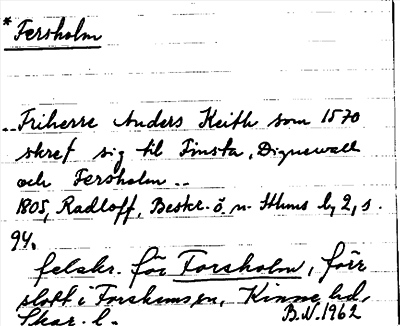 *Fersholm
..Friherre Anders Keith som 1570
skref sig til Finsta, Dignewall
och Fersholm..
1805, Radloff, Beskr. ö. n. Sthms l, 2, s.
94.
felskr. för Forsholm, förr
slott i Forshems sn, Kinne hd,
Skar. l. B.N. 1962